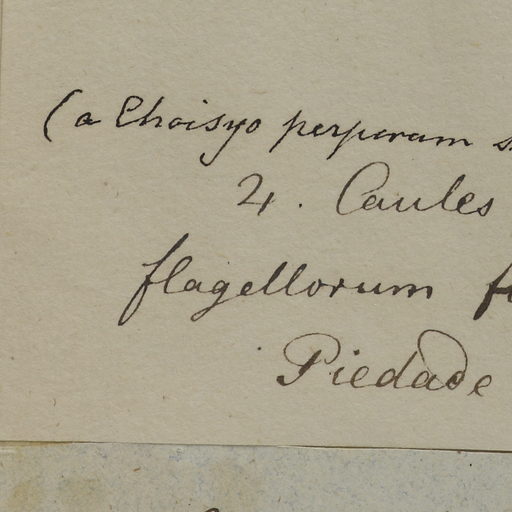 (a Choisyo perperam
24. Caules
flagellorum
Piedade